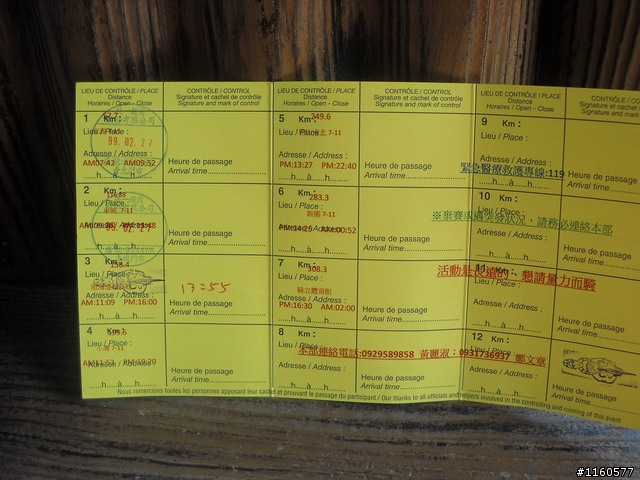 LIEU DE CONTRÔLE / PLACE
Distance
Horaires / Open - Close
CONTRÔLE / CONTROL
Signature et cachet de contrôle
Signature and mark of control
1 Km :
Lieu / Place :
99.02.27
Adresse / Address :
AM07:42 AM09:52
...h...à...h...
Heure de passage
Arrival time
2 Km :
Lieu / Place :
7-11
99.02.27
...h...à...h...
Heure de passage
Arrival time
3 Km :
Lieu / Place :
Adresse / Address :
AM:11:09 PM:16:00
...h...à...h...
17:55
Heure de passage
Arrival time
4 Km :
Lieu / Place :
7-11
Adresse / Address :
...h...à...h...
Heure de passage
Arrival time
LIEU DE CONTRÔLE / PLACE
Distance
Horaires / Open - Close
CONTRÔLE / CONTROL
Signature et cachet de contrôle
Signature and mark of control
5 Km :
249.6
Lieu / Place :
7-11
Adresse / Address :
PM:13:27 PM:22:40
...h...à...h...
Heure de passage
Arrival time
6 Km :
283.3
Lieu / Place :
7-11
Adresse / Address :
...h...à...h...
Heure de passage
Arrival time
7 Km :
308.3
Lieu / Place :
縣立體育館
Adresse / Address :
PM:16:30 AM:02:00
...h...à...h...
Heure de passage
Arrival time
8 Km :
Lieu / Place :
本部連絡電話:0929589858 黃麗淑；0931736937 鄭文章
Adresse / Address :
...h...à...h...
Heure de passage
Arrival time
LIEU DE CONTRÔLE / PLACE
Distance
Horaires / Open - Close
9 Km :
Lieu / Place :
緊急醫療救護專線:119
...h...à...h...
Heure de passage
Arrival time
10 Km :
Lieu / Place :
※棄賽或遇突發狀況，請務必連絡本部
...h...à...h...
Heure de passage
Arrival time
11 Km :
活動是長遠的，懇請量力而騎
Lieu / Place :
Adresse / Address :
...h...à...h...
Heure de passage
Arrival time
12 Km :
Lieu / Place :
Adresse / Address :
...h...à...h...
Heure de passage
Arrival time
Nous remercions toutes les personnes apposant leur cachet et prouvant le passage du participant / Our thanks to all officials and helpers involved in the controlling and running of this event
#1160577